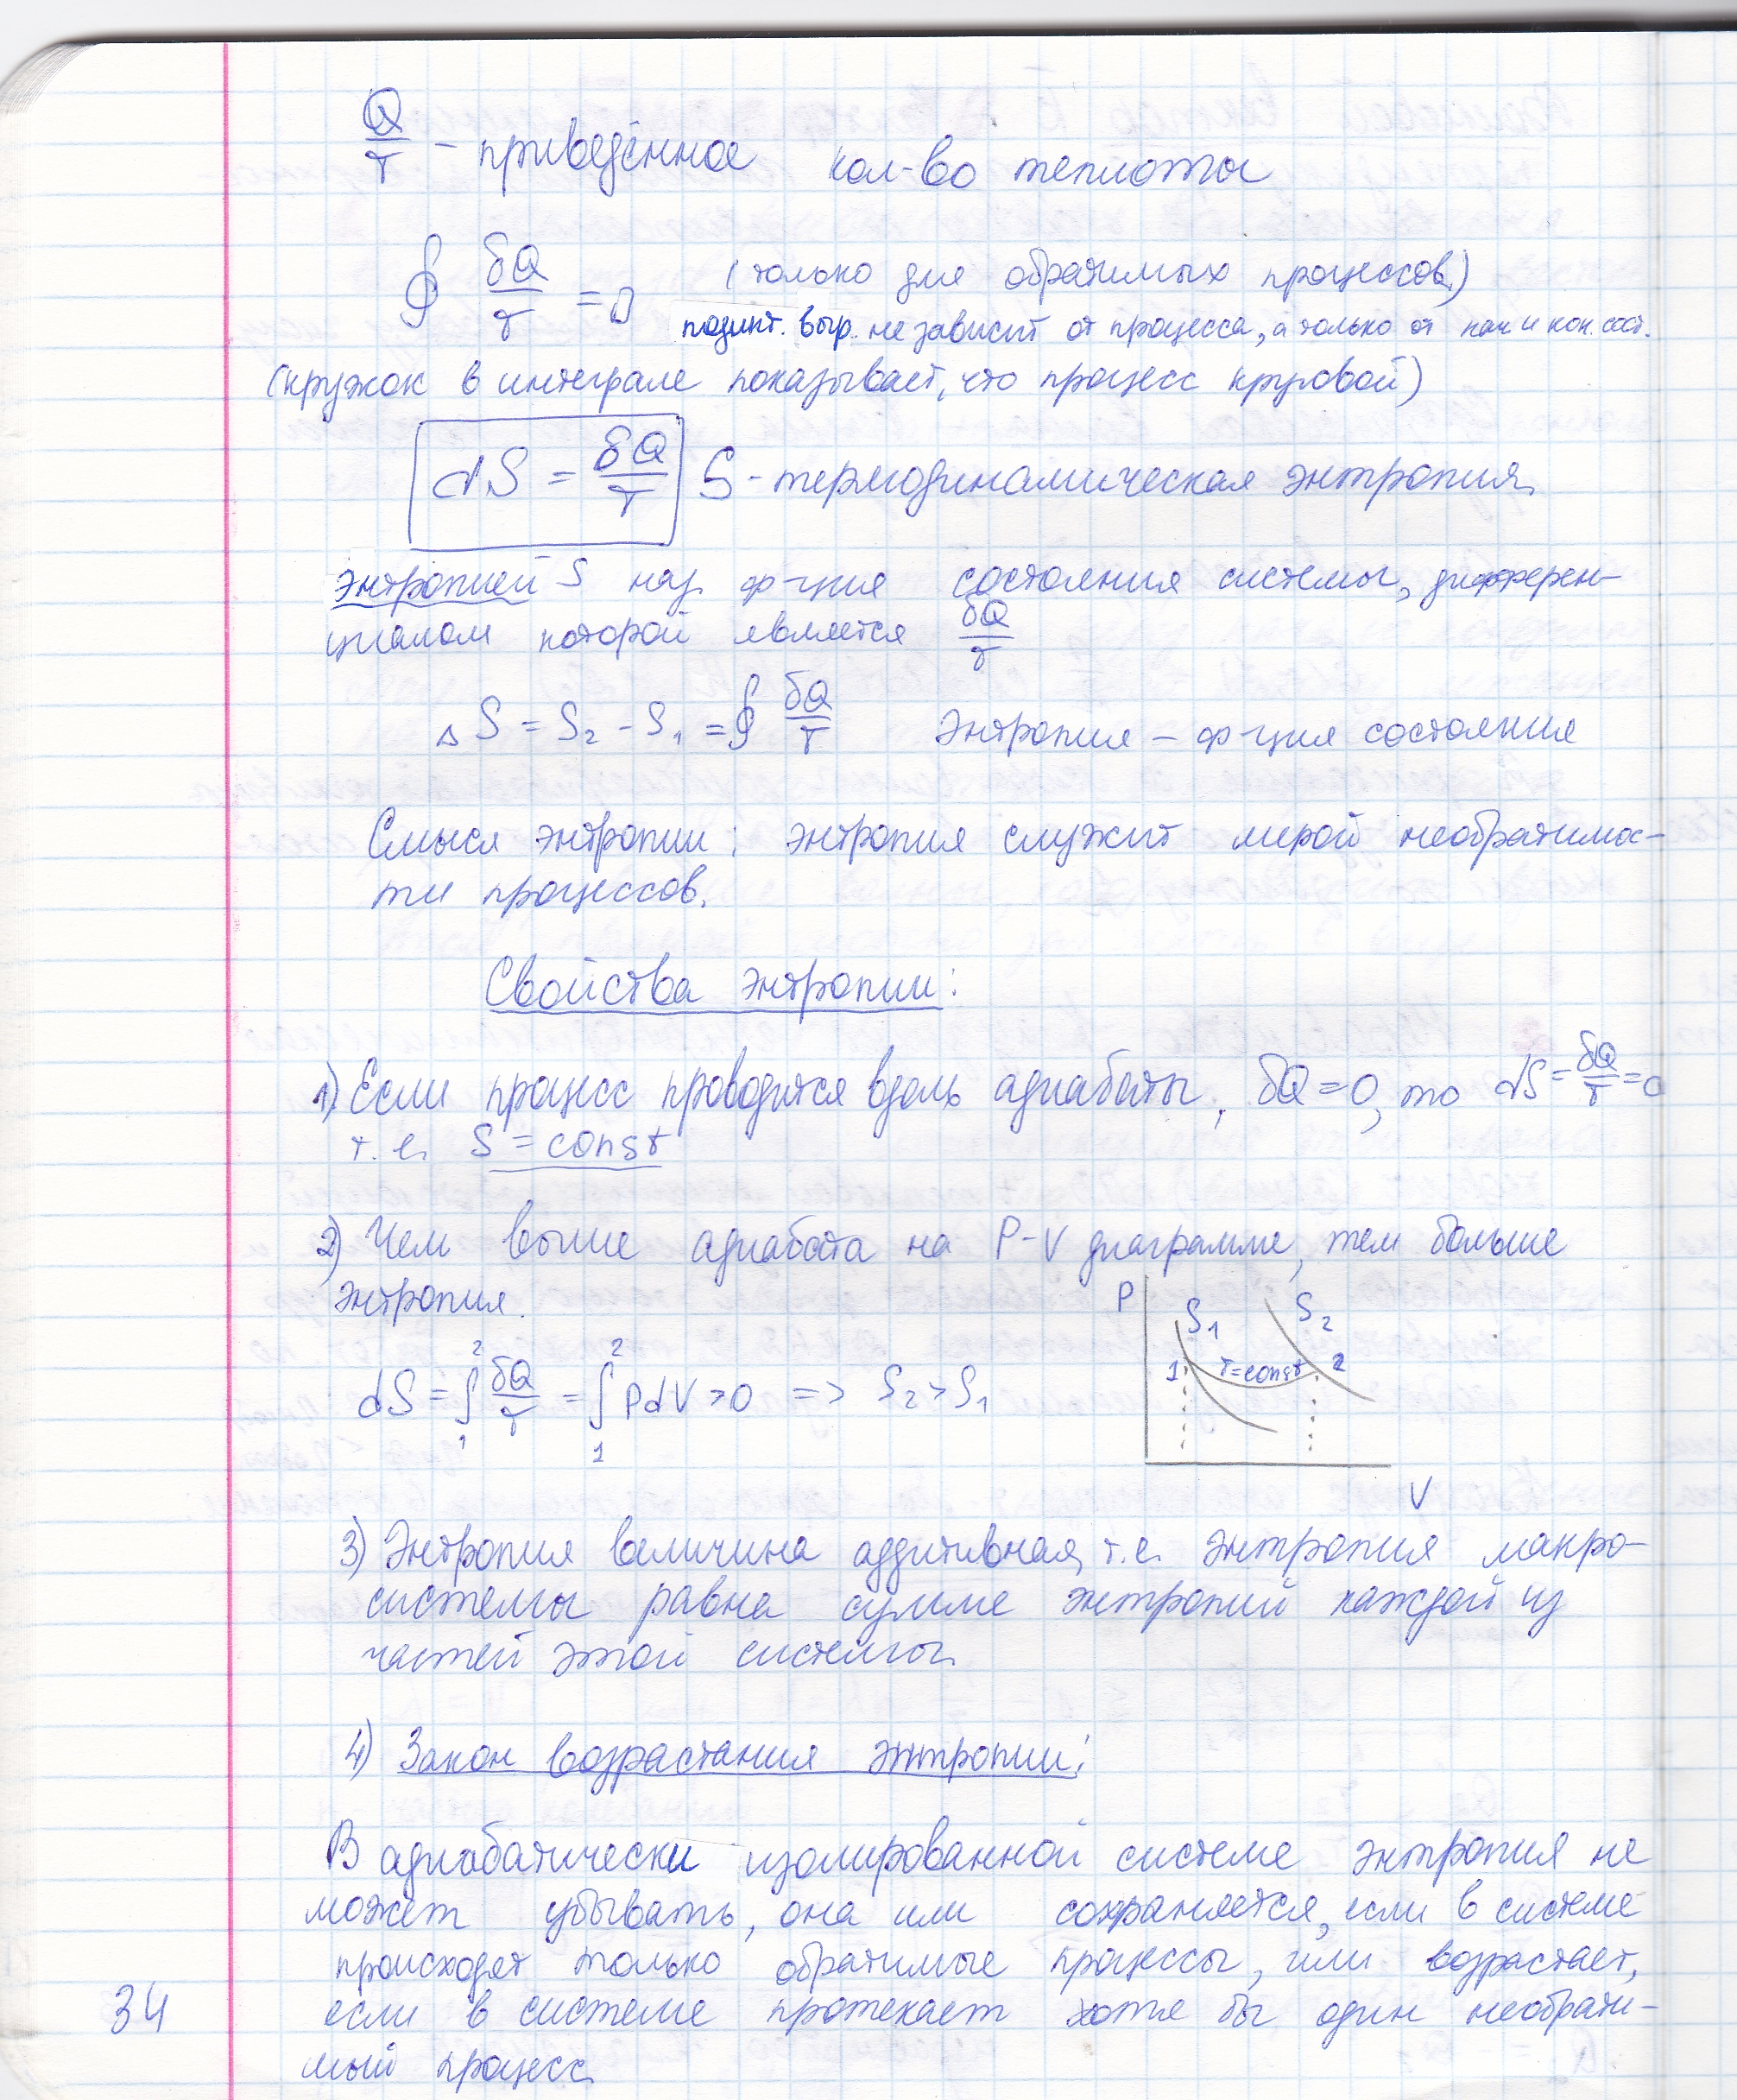 Q/T - приведённое кол-во теплоты
∮ δQ/T = 0 (только для обратимых процессов)
подинт. выр. не зависит от процесса, а только от нач и кон. сост.
(кружок в интеграле показывает, что процесс круговой)
dS = δQ/T S - термодинамическая энтропия
Энтропией S наз. ф-ция состояния системы, дифферен-
циалом которой является δQ/T
ΔS = S₂ - S₁ = ∮ δQ/T Энтропия – ф-ция состояния
Смысл энтропии: энтропия служит мерой необратимос-
ти процессов.
Свойства энтропии:
1) Если процесс проводится вдоль адиабаты, δQ = 0, то dS = δQ/T = 0
т.е. S = const
2) Чем выше адиабата на P-V диаграмме, тем больше
энтропия.
dS = ∫₁² δQ/T = ∫₁² PdV > 0 => S₂ > S₁
P S₁ S₂
1 T=const 2
V
3) Энтропия величина аддитивная, т.е. энтропия макро-
системы равна сумме энтропий каждой из
частей этой системы.
4) Закон возрастания энтропии:
В адиабатически изолированной системе энтропия не
может убывать, она или сохраняется, если в системе
происходят только обратимые процессы, или возрастает,
если в системе протекает хотя бы один необрати-
мый процесс.
34